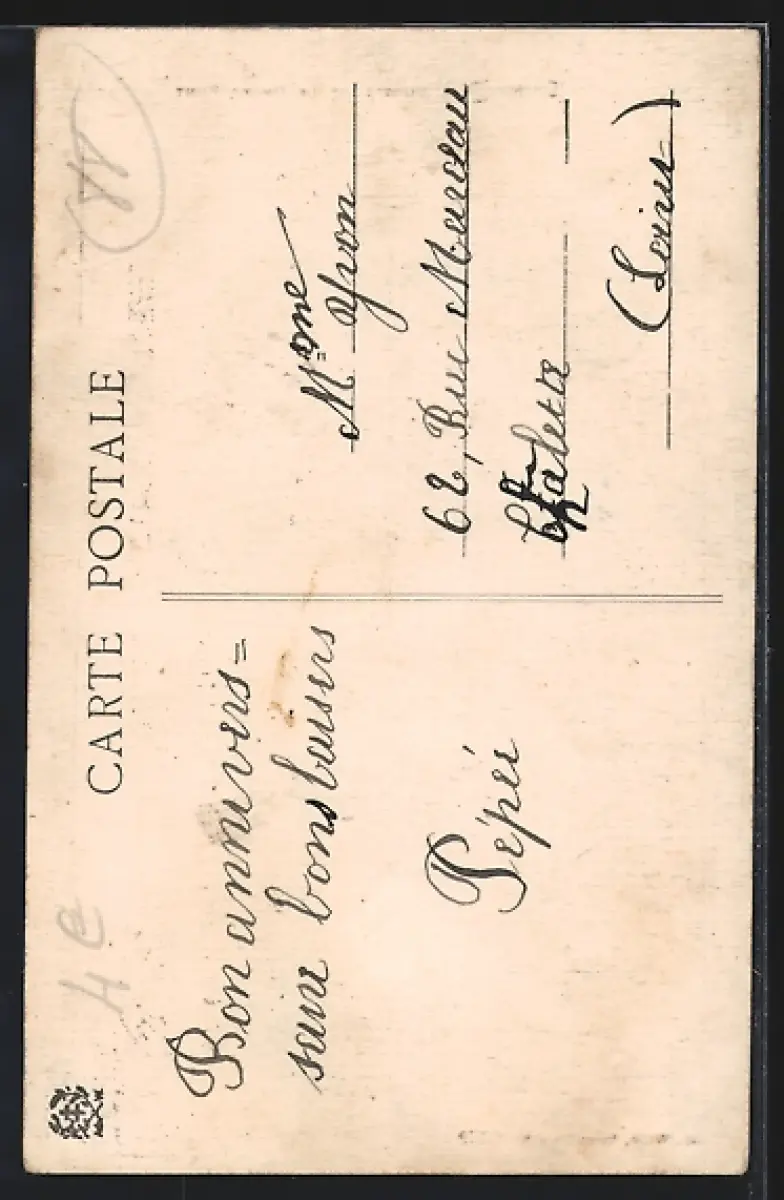 CARTE POSTALE
Bon annivers=
saire bons baisers
Pépée
Mme
Yvon
62, Rue Marceau
Chalette
(Loiret)
4e